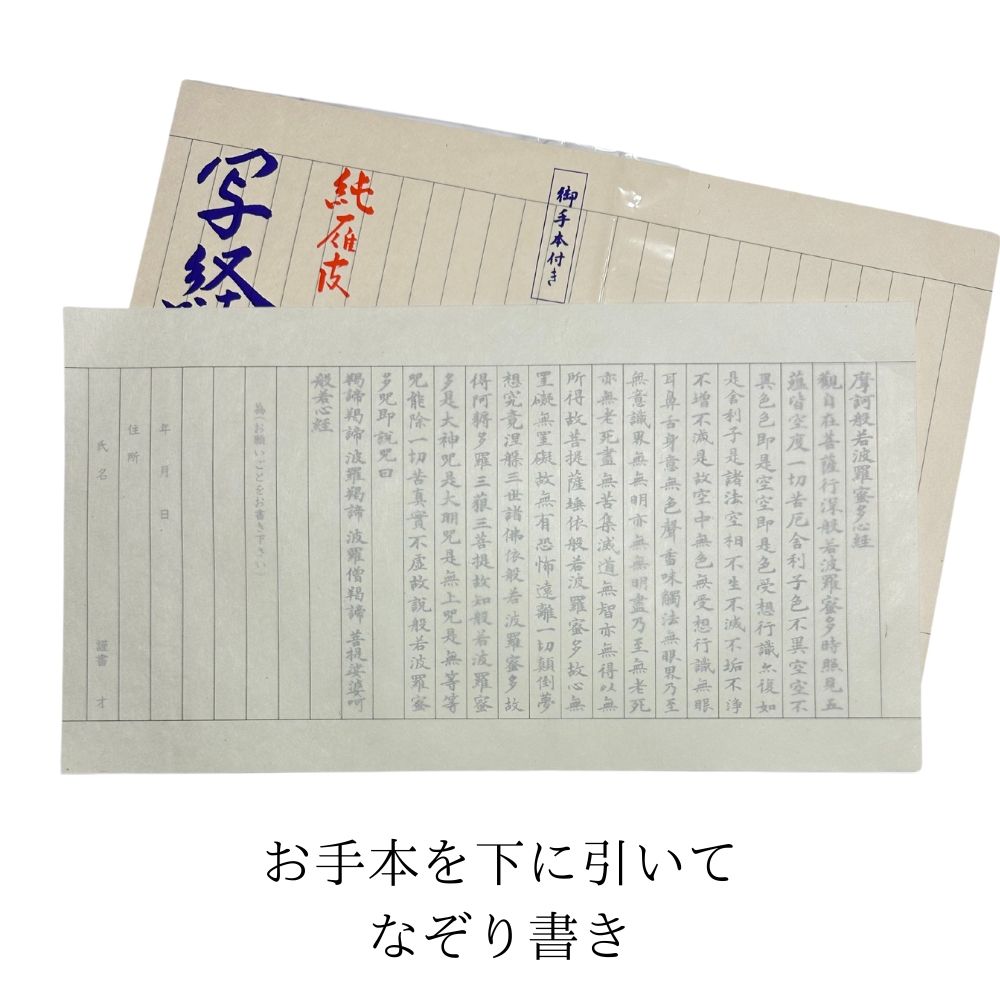 写経
純雁皮
御手本付き
摩訶般若波羅蜜多心経
觀自在菩薩行深般若波羅蜜多時照見五
蘊皆空度一切苦厄舎利子色不異空空不
異色色即是空空即是色受想行識亦復如
是舎利子是諸法空相不生不滅不垢不浄
不增不減是故空中無色無受想行識無眼
耳鼻舌身意無色聲香味觸法無眼界乃至
無意識界無無明亦無無明盡乃至無老死
亦無老死盡無苦集滅道無智亦無得以無
所得故菩提薩埵依般若波羅蜜多故心無
罣礙無罣礙故無有恐怖遠離一切顛倒夢
想究竟涅槃三世諸佛依般若波羅蜜多故
得阿耨多羅三藐三菩提故知般若波羅蜜
多是大神咒是大明咒是無上咒是無等等
咒能除一切苦真實不虚故説般若波羅蜜
多咒即説咒曰
羯諦羯諦波羅羯諦 波羅僧羯諦 菩提娑婆訶
般若心経
為(お願いごとをお書き下さい)
年 月 日
住所
氏名 謹書 才
お手本を下に引いて
なぞり書き